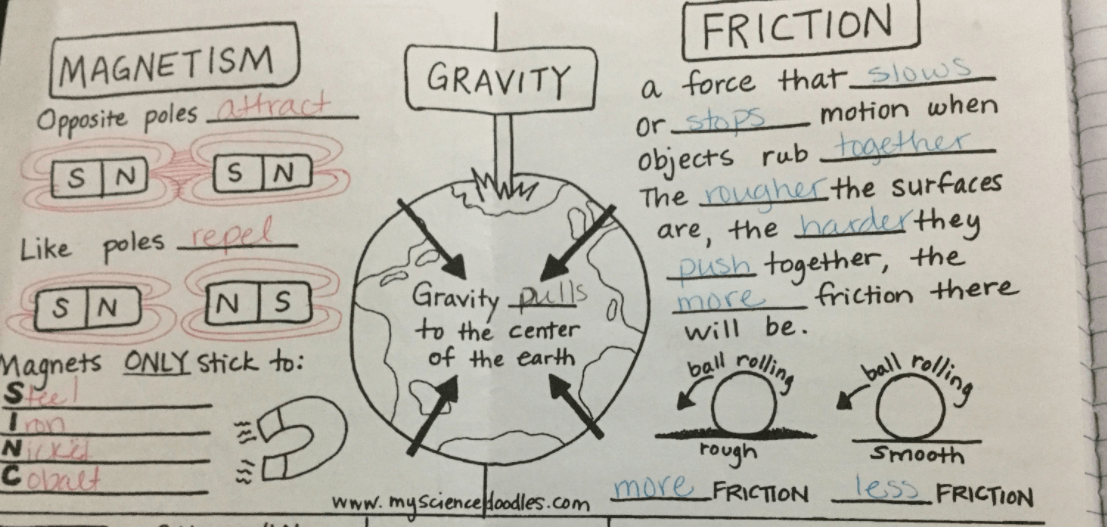 MAGNETISM
Opposite poles attract
S N S N
Like poles repel
S N N S
Magnets ONLY stick to:
Steel
Iron
Nickel
Cobalt
GRAVITY
Gravity pulls
to the center
of the earth
www.mysciencedoodles.com
FRICTION
a force that slows
or stops motion when
objects rub together
The rougher the surfaces
are, the harder they
push together, the
more friction there
will be.
ball rolling
rough
more FRICTION
ball rolling
smooth
less FRICTION